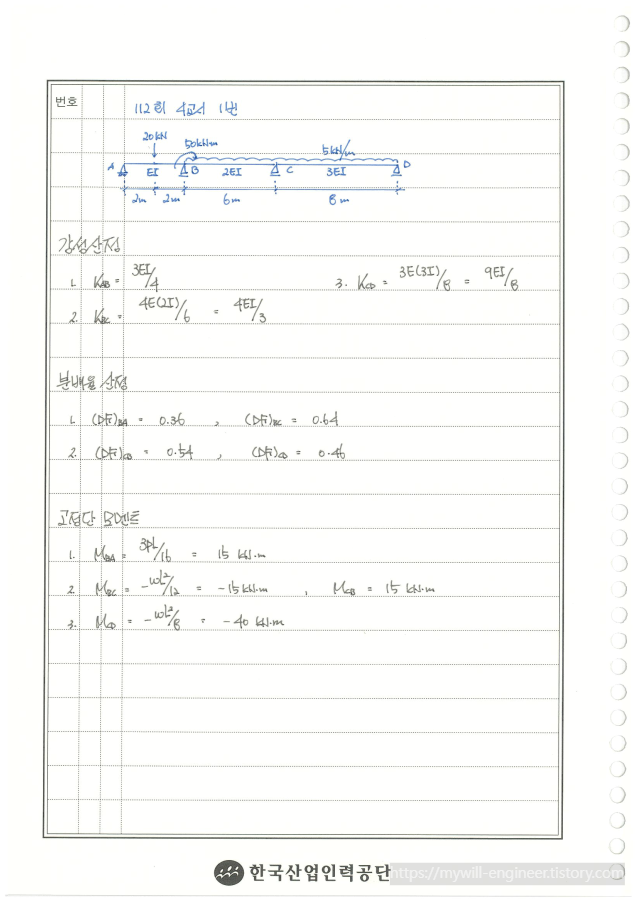 번호
112회 4교시 1번
20kN
50kN·m
5kN/m
A EI B 2EI C 3EI D
2m 2m 6m 8m
강성산정
1. K_AB = 3EI/4
3. K_CD = 3E(3I)/8 = 9EI/8
2. K_BC = 4E(2I)/6 = 4EI/3
분배율 산정
1. (DF)_BA = 0.36 , (DF)_BC = 0.64
2. (DF)_CB = 0.54 , (DF)_CD = 0.46
고정단 모멘트
1. M_BA = 3PL/16 = 15 kN·m
2. M_BC = -wL²/12 = -15kN·m , M_CB = 15 kN·m
3. M_CD = -wL²/8 = -40 kN·m
한국산업인력공단
https://mywill-engineer.tistory.com